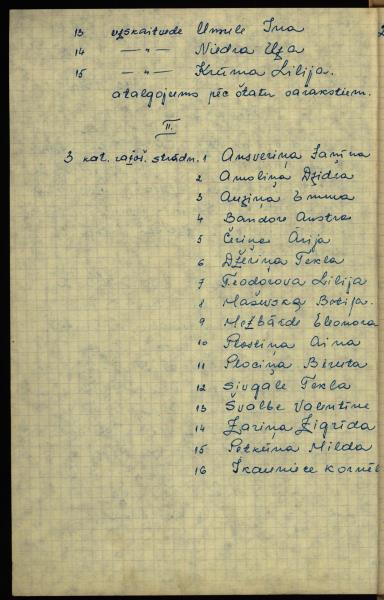 13 uzskaitvede Urmule Ina
14 — " — Niedra Uza
15 — " — Krūma Lilija.
atalgojums pēc štatu sarakstiem.
II.
3 kat. ražoš. strādn. 1 Ansveriņa Janīna
2 Amoliņa Dzidra
3 Auziņa Emma
4 Bandore Austra
5 Čeriņa Ārija
6 Džeriņa Tekla
7 Feodorova Lilija
8 Maševska Broņa.
9 Mežbārde Eleonora
10 Plostiņa Aina
11 Plociņa Biruta
12 Sivgale Tekla
13 Švalbe Valentīne
14 Zariņa Zigrīda
15 Petkūna Milda
16 Ikauniece Kornēl